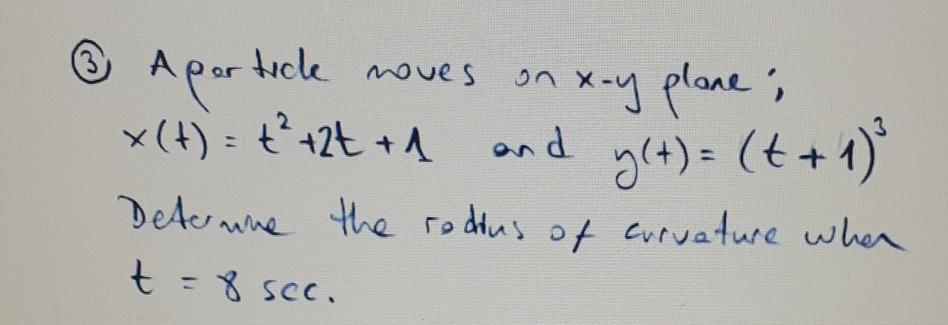 ③ A particle moves on x-y plane;
x(t) = t²+2t+1 and y(t) = (t+1)³
Determine the radius of curvature when
t = 8 sec.